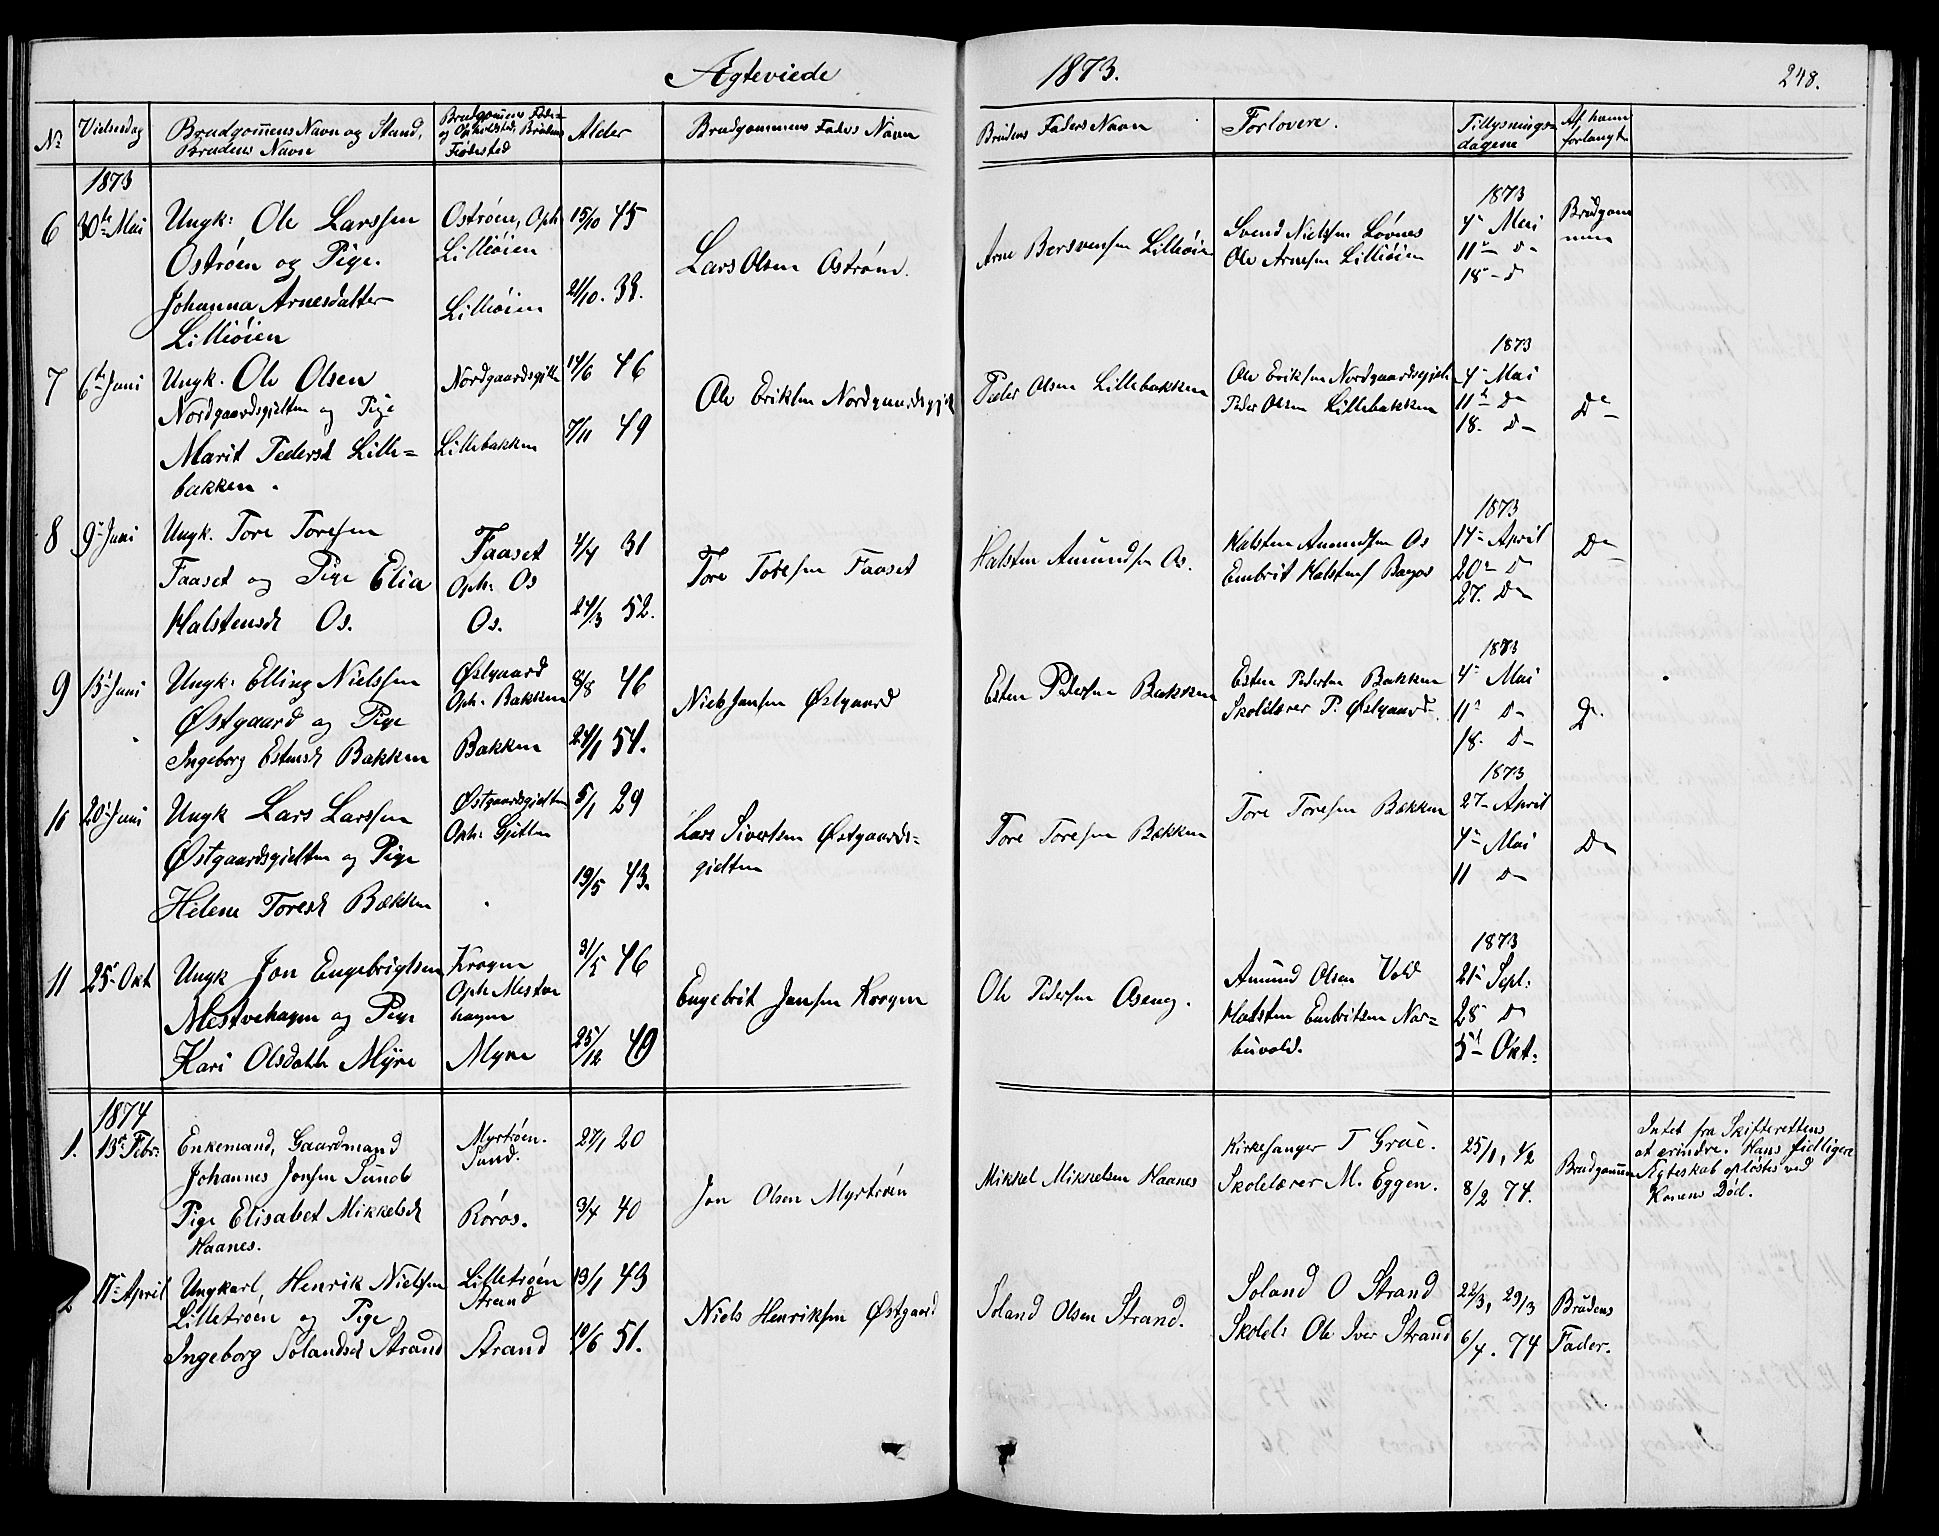 Ægteviede 1873. 248.
No Vielsesdag Brudgom̄ens Navn og Stand, Brudens Navn
Brudgom̄ens Føde- og Opholdssted, Brudens Fødested
Alder Brudgommens Faders Navn Brudens Faders Navn Forlovere. Tillysnings-dagene Af hvem forlangt
1873
6 30te Mai Ungk: Ole Larssen
Ostrøen og Pige.
Johanna Arnesdatter
Lilleøien
Ostrøen, Oph
Lilleøien
Lilleøien
15/10 45
21/10. 38.
Lars Olsen Ostrøen.
Arne Bersvensen Lilleøien
Svend Nielsen Løvnes
Ole Arnesen Lilleøien
1873
4de Mai
11te Do
18- Do
Brudgommen
7 6te Juni Ungk. Ole Olsen
Nordgaardsgjelten og Pige
Marit Pedersd Lille=
bakken.
Nordgaardsgjelten
Lillebakken
14/6 46
7/11 49
Ole Eriksen Nordgaardsgjelt
Peder Olsen Lillebakken
Ole Eriksen Nordgaardsgjelt
Peder Olsen Lillebakken
1873
4- Mai
11te Do
18. Do
Do
8 9- Juni Ungk. Tore Toresen
Faaset og Pige Elia
Halstensd Os.
Faaset
Oph: Os
Os.
4/4 31
24/3 52.
Tore Toresen Faaset
Halsten Amundsen Os.
Halsten Amundsen Os
Embrit Halstens
1873
14- April
20- Do
27. Do
Do
9 15- Juni Ungk: Elling Nielssen
Østgaard og Pige
Ingeborg Estensd Bakken
Østgaard
Oph: Bakken
Bakken
8/8 46
24/1 51.
Niels Jensen Østgaard
Esten Pedersen Bakken
Esten Pedersen Bakken
Skolelærer P. Østgaard
1873
4- Mai
11- Do
18- Do
Do
10 20- Juni Ungk Lars Larssen
Østgaardsgjelten og Pige
Helene Toresd Bækken
Østgaardsgjelten
Oph: Gjelten
5/1 29
19/5 43.
Lars Sivertsen Østgaards-
gjelten
Tore Toresen Bækken
Tore Toresen Bækken
1873
27- April
4- Mai
11 Do
Do
11 25- Okt Ungk Jon Engebrigtsen
Mestvehagen og Pige
Kari Olsdatter Myre
Krogen
Oph Mestve
hagen
Myre
31/5 46
25/12 49
Engebrit Jonsen Krogen
Ole Pedersen Oseng.
Amund Olsen Vold
Halsten Embritsen Nar=
buvold.
1873
21- Sept:
28 Do
5- Okt:
1874
1. 13de Febr: Enkemand, Gaardmand
Johannes Jonsen Sundt
Pige Elisabet Mikkelsd
Haanes.
Myrtrøen.
Sund.
Røros.
27/1 20
3/4 40
Jon Olsen Myrtrøen
Mikkel Mikkelsen Haanes
Kirkesanger T Grue.
Skolelærer M. Eggen.
25/1, 1/2
8/2 74.
Brudgom̄en
Intet fra Skifteretten
at erindre. Hans tidligere
Ægteskab opløstes ved
Konens Død.
2 17- April Ungkarl, Henrik Nielsen
Lilletrøen og Pige
Ingeborg Solandsd Strand
Lilletrøen
Strand
Strand
13/1 43
10/6 51.
Niels Henriksen Østgaard
Soland Olsen Strand.
Soland O Strand
Skolel: Ole Iver Strand
22/3, 29/3
6/4. 74
Brudens
Fader.